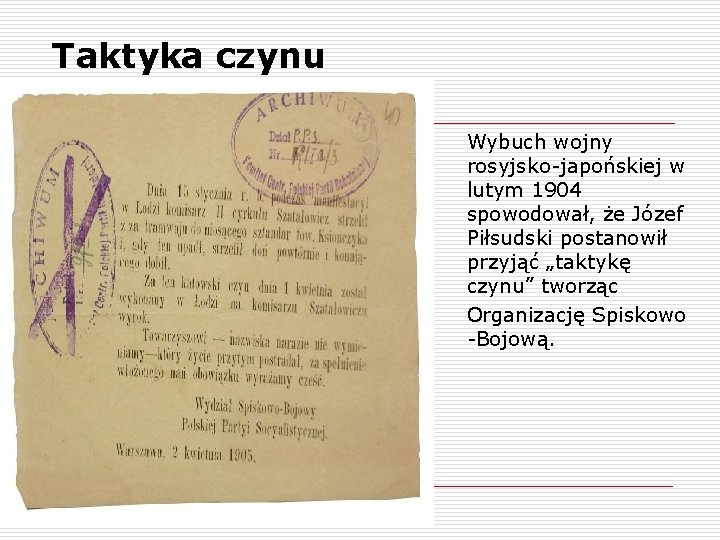 Taktyka czynu
ARCHIWUM
Dział P.P.S
Nr.
40
Komitet Centr. Polskiej Partii Robotniczej
ARCHIWUM
Dnia 15 stycznia r. b. podczas manifestacyi
w Łodzi komisarz II cyrkułu Szatałowicz strzelił
z za tramwaju do niosącego sztandar tow. Książczyka
i, gdy ten upadł, strzelił doń powtórnie i konają-
cego dobił.
Za ten katowski czyn dnia 1 kwietnia został
wykonany w Łodzi na komisarzu Szatałowiczu
wyrok.
Towarzyszowi — nazwiska narazie nie wymie-
niamy—który życie przytym postradał, za spełnienie
włożonego nań obowiązku wyrażamy cześć.
Wydział Spiskowo-Bojowy
Polskiej Partyi Socyalistycznej.
Warszawa, 2 kwietnia 1905.
Wybuch wojny
rosyjsko-japońskiej w
lutym 1904
spowodował, że Józef
Piłsudski postanowił
przyjąć „taktykę
czynu” tworząc
Organizację Spiskowo
-Bojową.